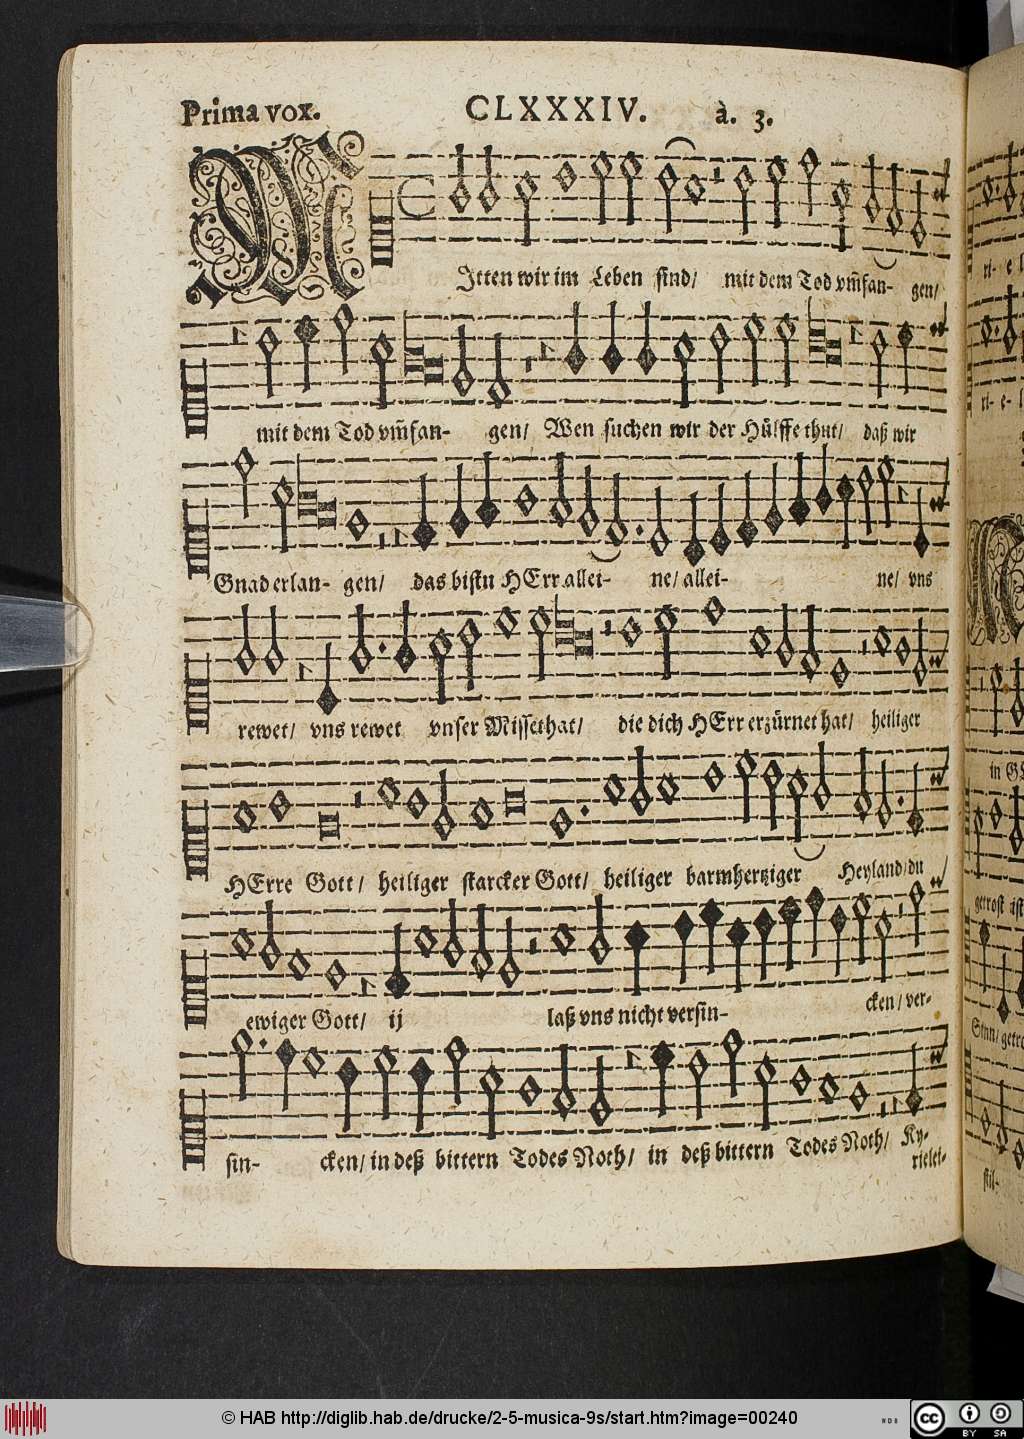 Prima vox. CLXXXIV. à. 3.
MItten wir im Leben sind/ mit dem Tod vm̃fan- gen/
mit dem Tod vm̃fan- gen/ Wen suchen wir der Hülffe thut/ daß wir
Gnad erlan- gen/ das bistu HErr allei- ne/ allei- ne/ vns
rewet/ vns rewet vnser Missethat/ die dich HErr erzürnet hat/ heiliger
HErre Gott/ heiliger starcker Gott/ heiliger barmhertziger Heyland/ du
ewiger Gott/ ij laß vns nicht versin- cken/ ver-
sin- cken/ in deß bittern Todes Noth/ in deß bittern Todes Noth/ Ky-
rielei-
ri- e
ri- e- l
in
getrost ist
Sinn/ getro
stil-
© HAB http://diglib.hab.de/drucke/2-5-musica-9s/start.htm?image=00240
cc BY SA